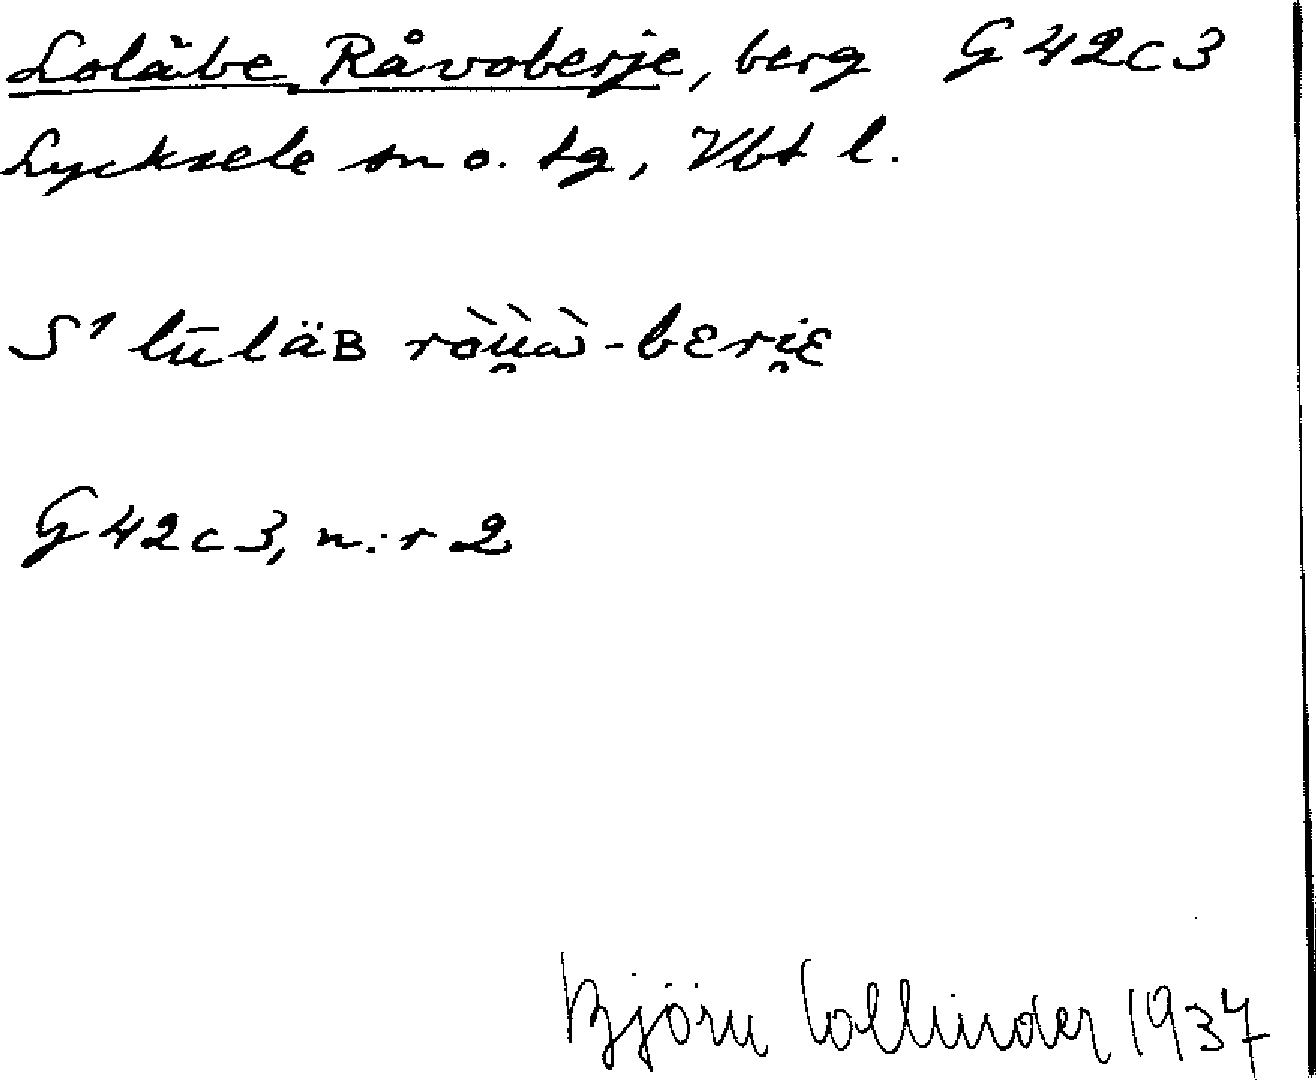 Loläbe Råvoberje, berg G 42c3
Lycksele sn o. tg, Vbt l.
S¹
G 42c3, n:r 2
Björn Collinder 1937